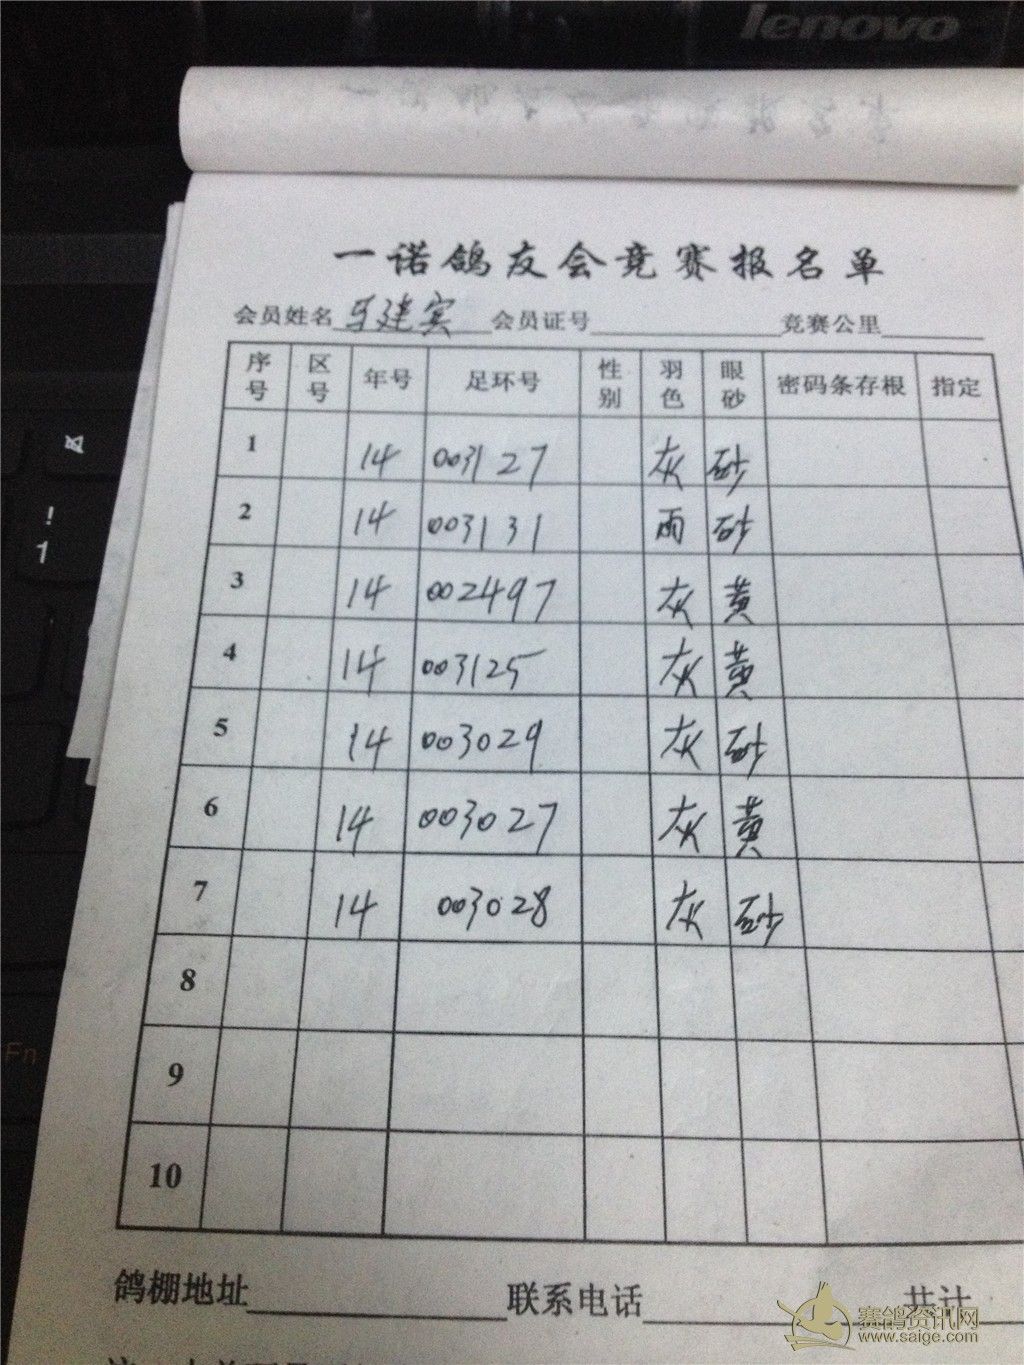 lenovo
一诺鸽友会竞赛报名单
会员姓名 马建宾 会员证号 竞赛公里
序号 区号 年号 足环号 性别 羽色 眼砂 密码条存根 指定
1 14 003127 灰 砂
2 14 003131 雨 砂
3 14 002497 灰 黄
4 14 003125 灰 黄
5 14 003029 灰 砂
6 14 003027 灰 黄
7 14 003028 灰 砂
8
9
10
鸽棚地址 联系电话 共计
赛鸽资讯网
www.saige.com
!
1
Fn